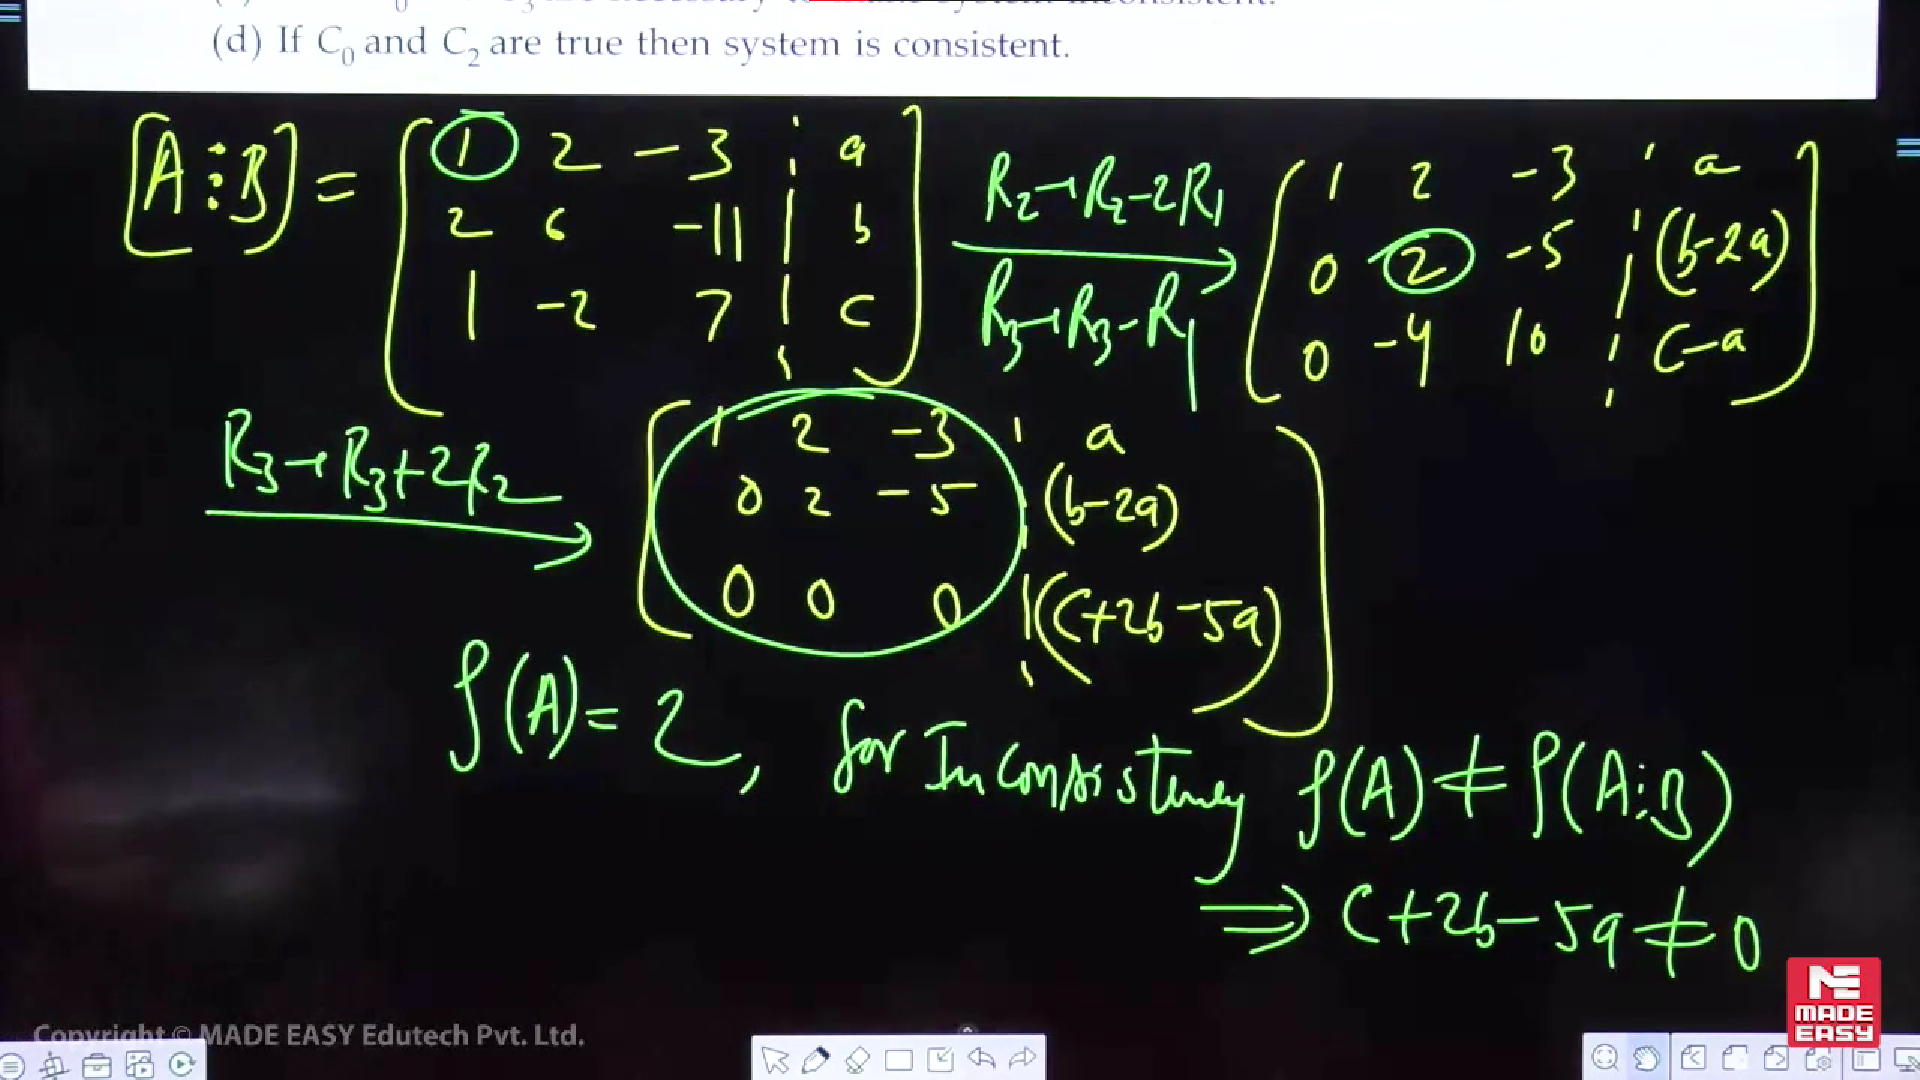 (d) If C₀ and C₂ are true then system is consistent.
[A⋮B] =
1 2 -3 a
2 6 -11 b
1 -2 7 c
R₂→R₂-2R₁
R₃→R₃-R₁
1 2 -3 a
0 2 -5 (b-2a)
0 -4 10 c-a
R₃→R₃+2R₂
1 2 -3 a
0 2 -5 (b-2a)
0 0 0 (c+2b-5a)
ρ(A)=2, for Inconsistency ρ(A)≠ρ(A⋮B)
⇒ c+2b-5a≠0
Copyright © MADE EASY Edutech Pvt. Ltd.
MADE
EASY